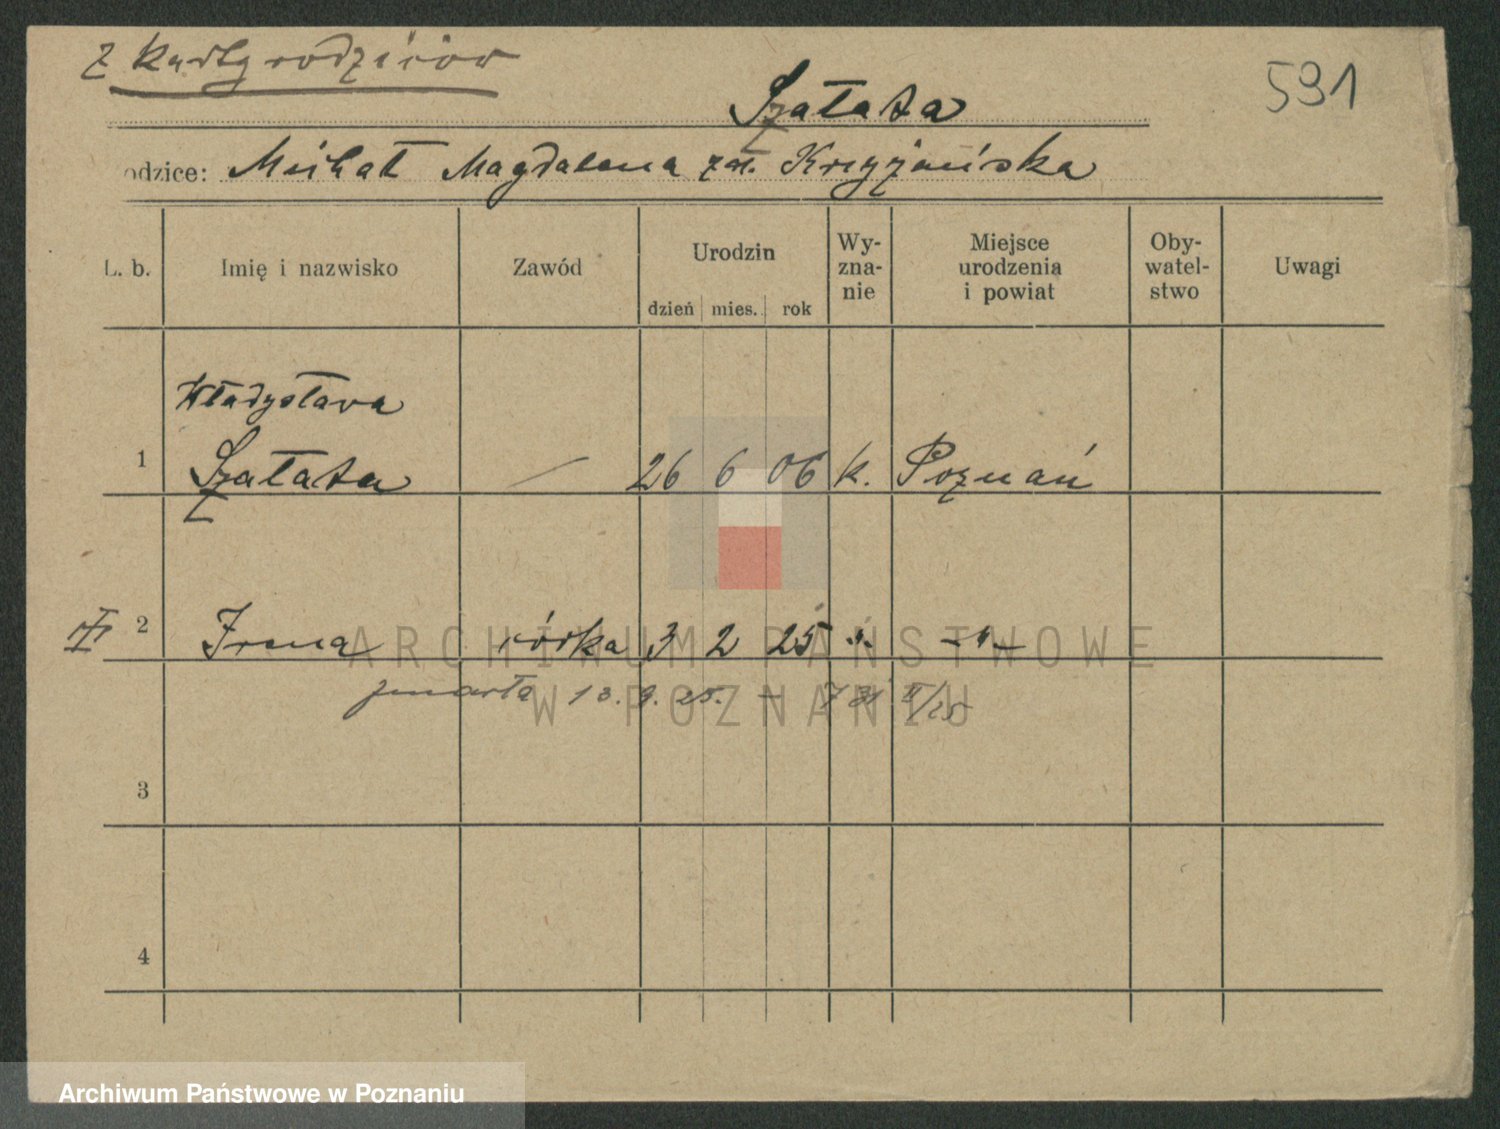 z karty rodziców
591
Szałata
odzice: Michał Magdalena zd. Krzyżańska
L. b. Imię i nazwisko Zawód Urodzin dzień mies. rok Wy-zna-nie Miejsce urodzenia i powiat Oby-watel-stwo Uwagi
Władysława
1 Szałata — 26 6 06 k. Poznań
2 Irena córka 3 2 25 -"- -"-
zmarła 13. 9. 25. —
3
4
ARCHIWUM PAŃSTWOWE
W POZNANIU
Archiwum Państwowe w Poznaniu